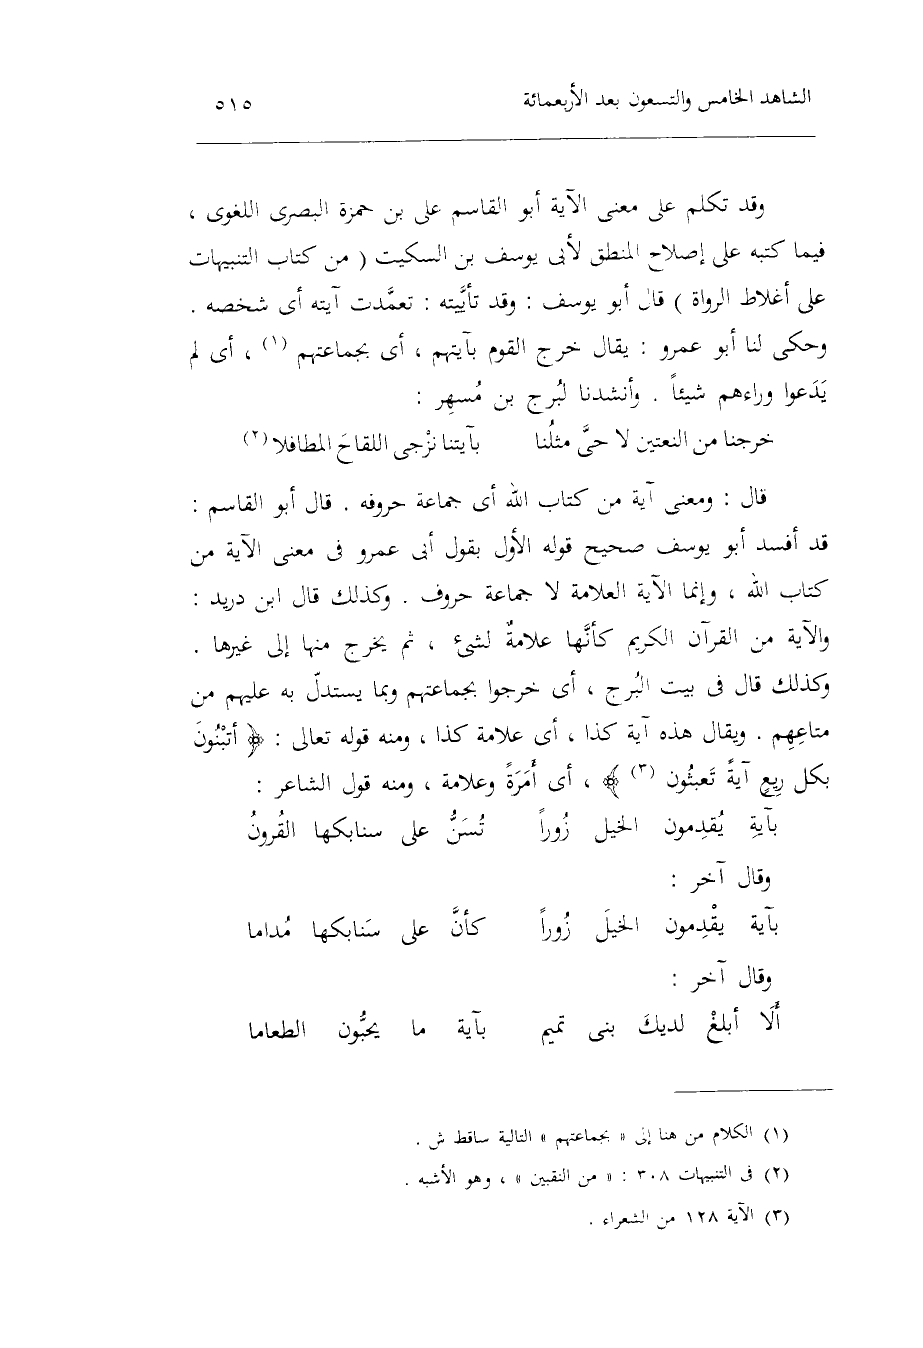 الشاهد الخامس والتسعون بعد الأربعمائة ٥١٥
وقد تكلم على معنى الآية أبو القاسم على بن حمزة البصرى اللغوى ،
فيما كتبه على إصلاح المنطق لأبى يوسف بن السكيت ( من كتاب التنبيهات
على أغلاط الرواة ) قال أبو يوسف : وقد تأيَّيته : تعمَّدت آيته أى شخصه .
وحكى لنا أبو عمرو : يقال خرج القوم بآيتهم ، أى بجماعتهم (١) ، أى لم
يَدَعوا وراءهم شيئاً . وأنشدنا لبُرج بن مُسهِر :
خرجنا من النعتين لا حىَّ مثلُنا بآيتنا نزْجى اللقاحَ المطافلا (٢)
قال : ومعنى آية من كتاب الله أى جماعة حروفه . قال أبو القاسم :
قد أفسد أبو يوسف صحيح قوله الأول بقول أبى عمرو فى معنى الآية من
كتاب الله ، وإنما الآية العلامة لا جماعة حروف . وكذلك قال ابن دريد :
والآية من القرآن الكريم كأنَّها علامةٌ لشىء ، ثم يخرج منها إلى غيرها .
وكذلك قال فى بيت البُرج ، أى خرجوا بجماعتهم وبما يستدلّ به عليهم من
متاعِهِم . ويقال هذه آية كذا ، أى علامة كذا ، ومنه قوله تعالى : ﴿ أتبْنُونَ
بكل رِيعٍ آيةً تَعبثُون (٣) ﴾ ، أى أَمَرَةً وعلامة ، ومنه قول الشاعر :
بآيةِ يُقدِمون الخيل زُوراً تُسَنُّ على سنابكها القُرونُ
وقال آخر :
بآية يقْدِمون الخيلَ زُوراً كأنَّ على سَنابكها مُداما
وقال آخر :
أَلَا أبلغْ لديكَ بنى تميم بآية ما يحبُّون الطعاما
(١) الكلام من هنا إلى « بجماعتهم » التالية ساقط ش .
(٢) فى التنبيهات ٣٠٨ : « من النقبين » ، وهو الأشبه .
(٣) الآية ١٢٨ من الشعراء .